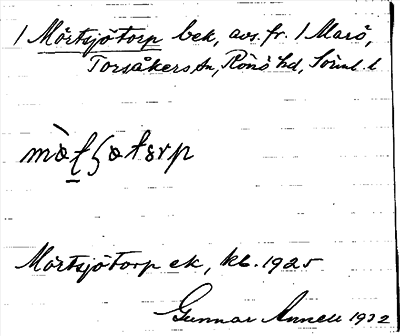 1 Mörtsjötorp bek, avs. fr. 1 Marö,
Torsåkers sn, Rönö hd, Söml. l
Mörtsjötorp ek, kb. 1925
Gunnar Annell 1932